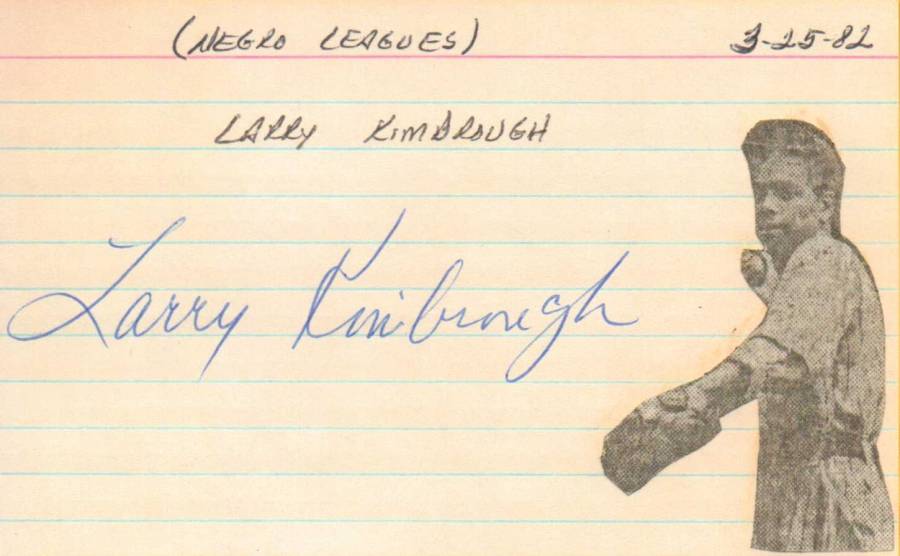 (NEGRO LEAGUES) 3-25-82
LARRY KIMBROUGH
Larry Kimbrough